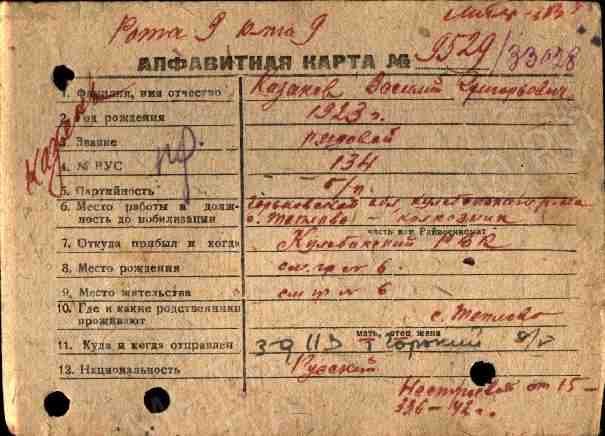 Рота 9
АЛФАВИТНАЯ КАРТА № 9529/33028
1. Фамилия, имя отчество Казаков Василий Григорьевич
2. Год рождения 1923 г.
3. Звание рядовой
4. № ВУС 134
5. Партийность б/п.
6. Место работы и долж-
ность до мобилизации с. Теплово - колхозник
часть или Райвоенкомат
7. Откуда прибыл и когда Кулебакский РВК
8. Место рождения см. гр № 6.
9. Место жительства см гр № 6
10. Где и какие родственники
проживают с. Теплово
мать, отец, жена
11. Куда и когда отправлен г Горький
12. Национальность Русский
от 15-